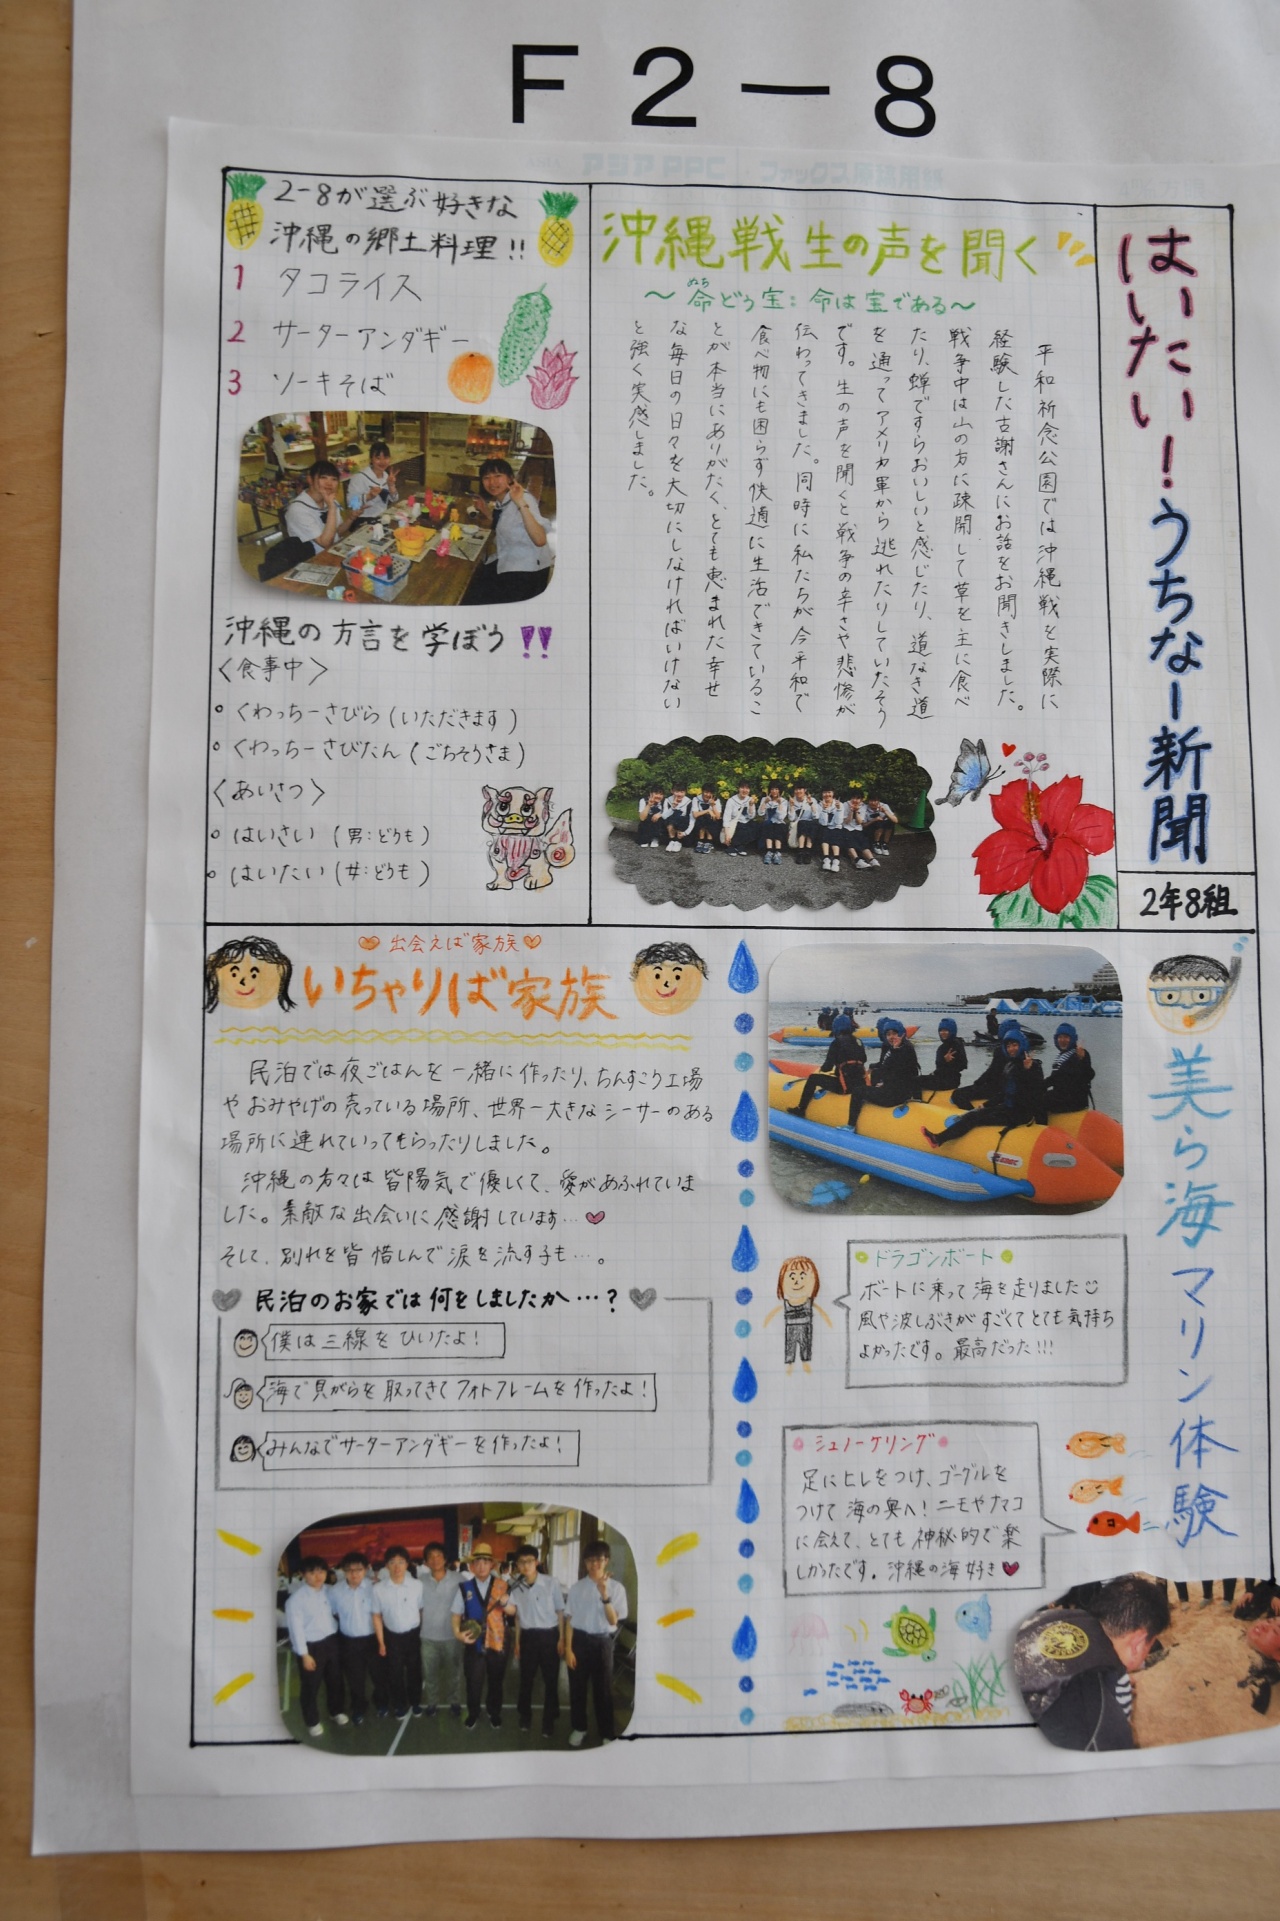 F2-8
はいたい！うちなー新聞
2年8組
沖縄戦 生の声を聞く
～命どぅ宝：命は宝である～
ぬち
平和祈念公園では沖縄戦を実際に
経験した古謝さんにお話をお聞きしました。
戦争中は山の方に疎開して草を主に食べ
たり、蝉ですらおいしいと感じたり、道なき道
を通ってアメリカ軍から逃れたりしていたそう
です。生の声を聞くと戦争の辛さや悲惨が
伝わってきました。同時に私たちが今平和で
食べ物にも困らず快適に生活できているこ
とが本当にありがたく、とても恵まれた幸せ
な毎日の日々を大切にしなければいけない
と強く実感しました。
2-8が選ぶ好きな
沖縄の郷土料理!!
1 タコライス
2 サーターアンダギー
3 ソーキそば
沖縄の方言を学ぼう!!
〈食事中〉
くわっちーさびら(いただきます)
くわっちーさびたん(ごちそうさま)
〈あいさつ〉
はいさい(男：どうも)
はいたい(女：どうも)
美ら海マリン体験
ドラゴンボート
ボートに乗って海を走りました☺
風や波しぶきがすごくてとても気持ち
よかったです。最高だった!!!
シュノーケリング
足にヒレをつけ、ゴーグルを
つけて海の奥へ！ニモやナマコ
に会えて、とても神秘的で楽
しかったです。沖縄の海好き♥
♡出会えば家族♡
いちゃりば家族
民泊では夜ごはんを一緒に作ったり、ちんすこう工場
やおみやげの売っている場所、世界一大きなシーサーのある
場所に連れていってもらったりしました。
沖縄の方々は皆陽気で優しくて、愛があふれていま
した。素敵な出会いに感謝しています…♡
そして、別れを皆惜しんで涙を流す子も…。
民泊のお家では何をしましたか…？
僕は三線をひいたよ！
海で貝がらを取ってきてフォトフレームを作ったよ！
みんなでサーターアンダギーを作ったよ！